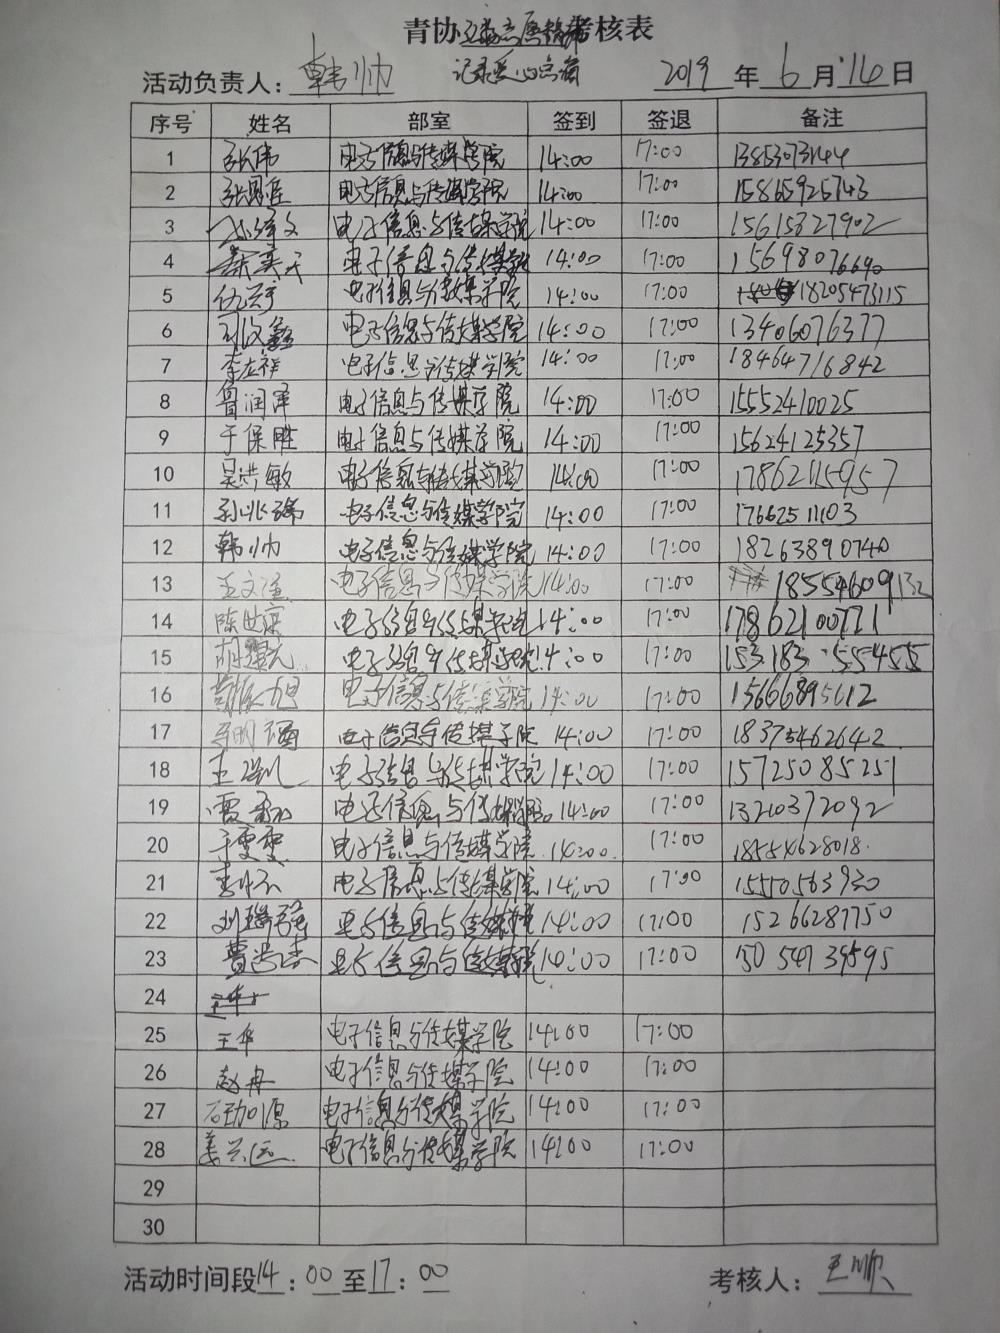 青协 志愿 考核表
活动负责人: 韩帅 2019 年 6 月 16 日
序号 姓名 部室 签到 签退 备注
1 张伟 电子信息与传媒学院 14:00 17:00
2 电子信息与传媒学院 14:00 17:00 15865925743
3 电子信息与传媒学院 14:00 17:00 15615827902
4 电子信息与传媒学院 14:00 17:00 15698076690
5 仇 电子信息与传媒学院 14:00 17:00 18205473115
6 电子信息与传媒学院 14:00 17:00 13406076377
7 李左祥 电子信息与传媒学院 14:00 17:00 18464716842
8 鲁润泽 电子信息与传媒学院 14:00 17:00 15552410025
9 于保胜 电子信息与传媒学院 14:00 17:00 15624125357
10 吴洪敏 电子信息与传媒学院 14:00 17:00
11 孙兆瑞 电子信息与传媒学院 14:00 17:00 17662511103
12 韩帅 电子信息与传媒学院 14:00 17:00 18263890740
13 电子信息与传媒学院 14:00 17:00 18554609132
14 陈世 电子信息与传媒学院 14:00 17:00 17862100771
15 胡 电子信息与传媒学院 14:00 17:00 153183 55455
16 电子信息与传媒学院 14:00 17:00 15666895612
17 电子信息与传媒学院 14:00 17:00 18375462642
18 王 电子信息与传媒学院 14:00 17:00 15725085251
19 雷 电子信息与传媒学院 14:00 17:00 13210372092
20 于雯雯 电子信息与传媒学院 14:00 17:00 18554628018
21 李 电子信息与传媒学院 14:00 17:00 15550563930
22 刘瑞强 电子信息与传媒学院 14:00 17:00 15266287750
23 曹 电子信息与传媒学院 14:00 17:00
24
25 王华 电子信息与传媒学院 14:00 17:00
26 赵冉 电子信息与传媒学院 14:00 17:00
27 石劲源 电子信息与传媒学院 14:00 17:00
28 姜兴运 电子信息与传媒学院 14:00 17:00
29
30
活动时间段14:00至17:00 考核人: 王顺